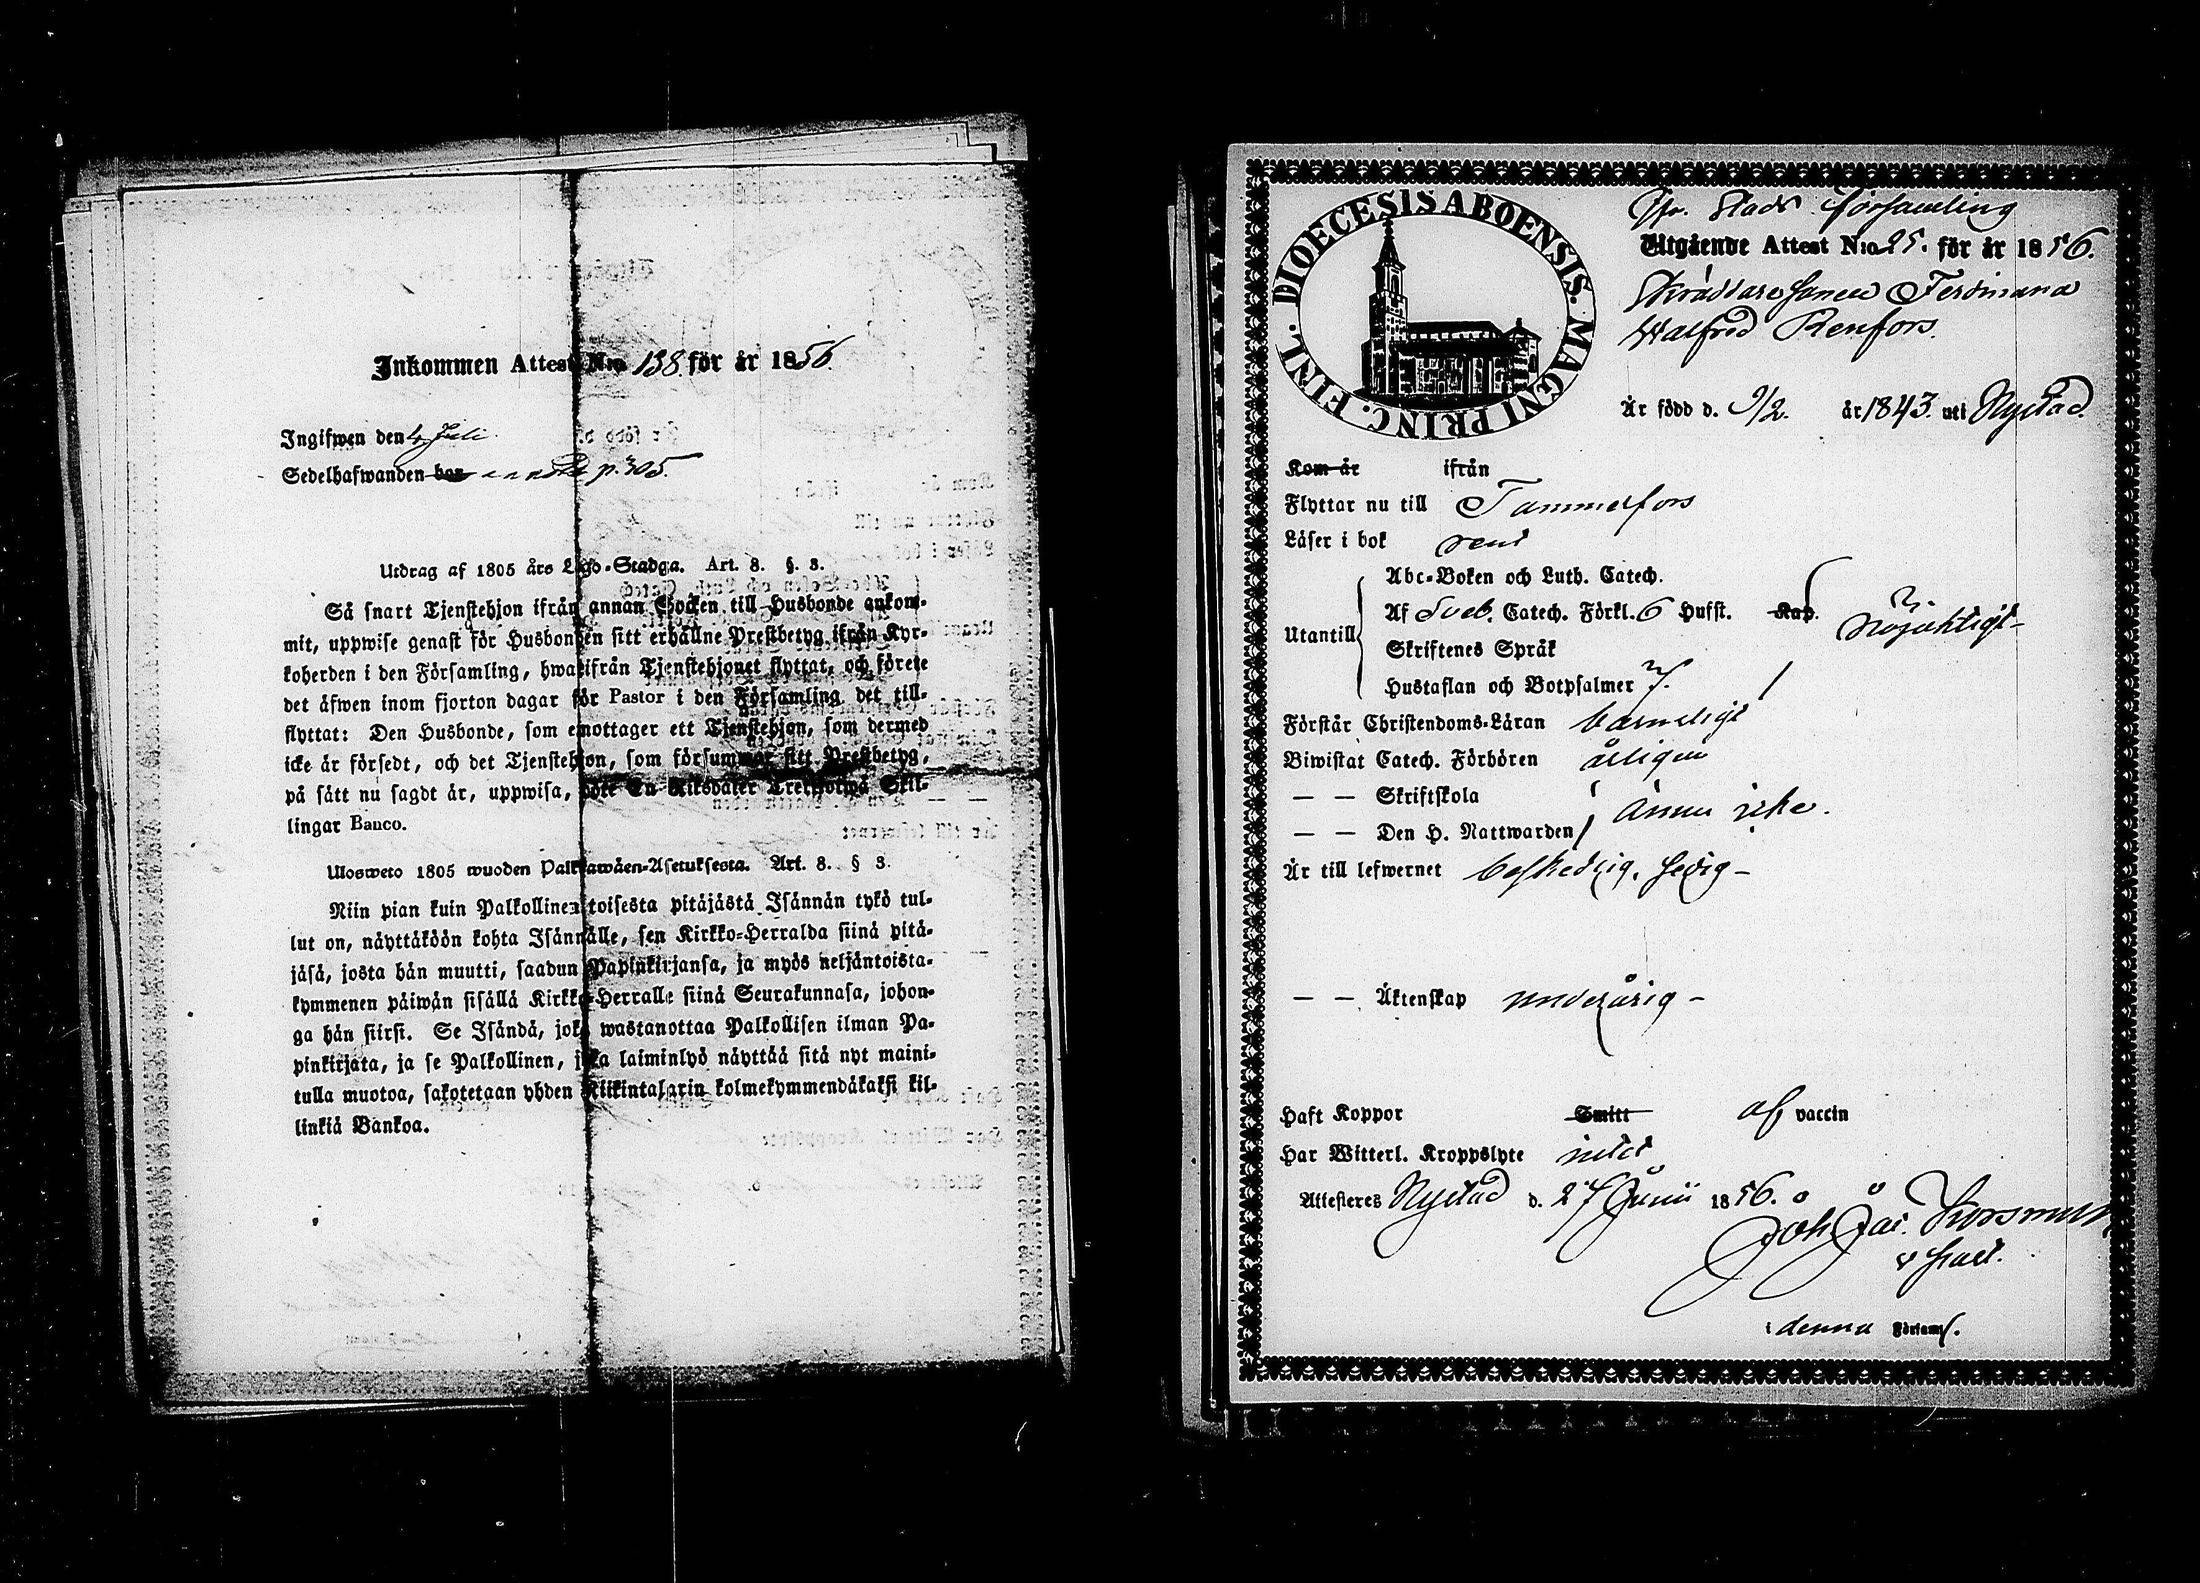 Inkommen Attest N:o 138 för år 1856.
Ingifwen den 4 Juli
Sedelhafwanden bor p. 305.
Utdrag af 1805 års Lego-Stadga. Art. 8. §. 3.
Så snart Tjenstehjon ifrån annan Socken till Husbonde ankom-
mit, uppwise genast för Husbonden sitt erhållne Prestbetyg ifrån Kyr-
koherden i den Församling, hwarifrån Tjenstehjonet flyttat, och förete
det äfwen inom fjorton dagar för Pastor i den Församling det till-
flyttat: Den Husbonde, som emottager ett Tjenstehjon, som dermed
icke är försedt, och det Tjenstehjon, som försummar sitt Prestbetyg,
på sätt nu sagdt är, uppwisa, böte En Riksdaler Trettiotwå Skil-
lingar Banco.
Ulosweto 1805 wuoden Palkkawäen-Asetuksesta. Art. 8. § 3.
Niin pian kuin Palkollinen toisesta pitäjästä Isännän tykö tul-
lut on, näyttäköön kohta Isännälle, sen Kirkko-Herralda siinä pitä-
jäsä, josta hän muutti, saadun Papinkirjansa, ja myös neljäntoista-
kymmenen päiwän sisällä Kirkko-Herralle siinä Seurakunnasa, johon-
ga hän siirsi. Se Isändä, joka wastanottaa Palkollisen ilman Pa-
pinkirjata, ja se Palkollinen, joka laiminlyö näyttää sitä nyt maini-
tulla muotoa, sakotetaan yhden Riikintalarin kolmekymmendäkaksi kil-
linkiä Bankoa.
DIOECESIS ABOENSIS. MAGNI PRINC. FINL.
Stads församling
Utgående Attest N:o 25. för år 1856.
Skräddaresonen Ferdinand
Walfred Renfors.
Är född d. 9/2. år 1843. uti Nystad.
Kom år ifrån
Flyttar nu till Tammerfors
Läser i bok rent
Utantill
Abc-Boken och Luth. Catech.
Af Sveb. Catech. Förkl. 6 Hufst. Kap.
Skriftenes Språk
Hustaflan och Botpsalmer 7.
Nöjaktigt
Förstår Christendoms-Läran barnsligt
Biwistat Catech. Förhören årligen
— — Skriftskola
— — Den H. Nattwarden
ännu icke.
Är till lefwernet beskedlig, sedig –
— — Äktenskap underårig –
Haft Koppor Smitt af vaccin
Har Witterl. Kroppslyte intet
Attesteres Nystad d. 27 Junii 1856.
Joh Jac.
v Past.
i denna Församl.